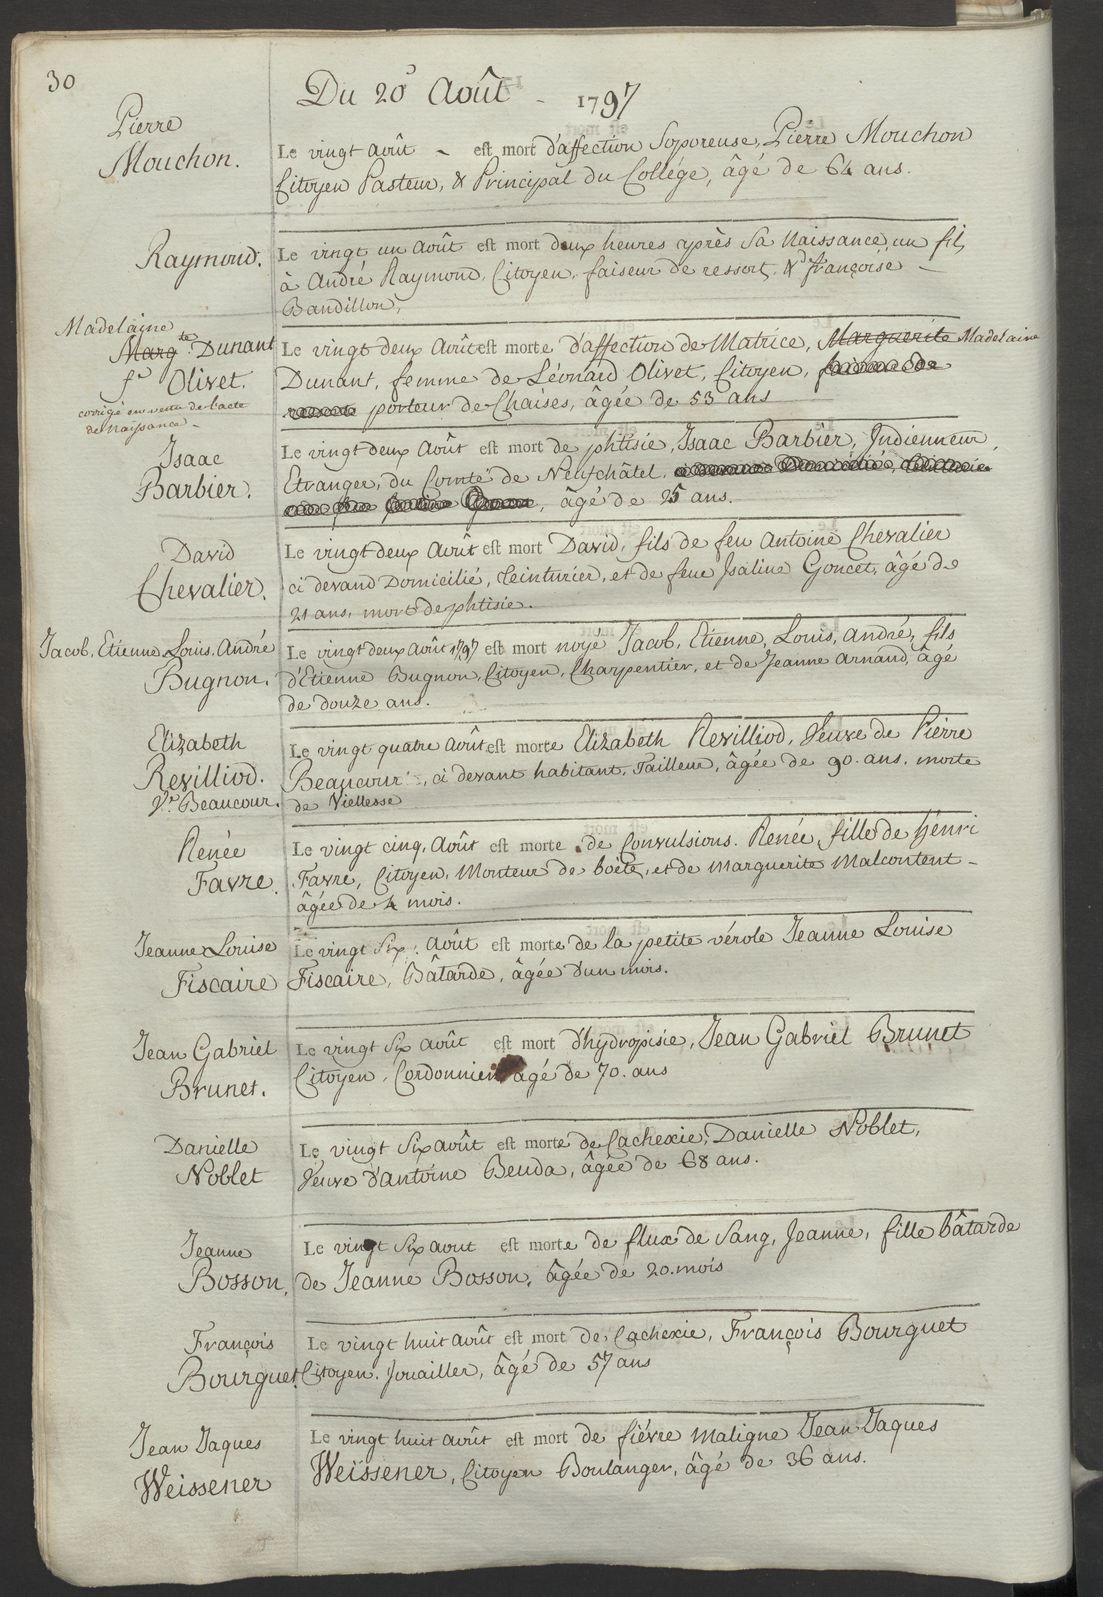 30
Du 20 Août - 1797
Pierre
Mouchon.
Le vingt Août - est mort d'affection Soporeuse, Pierre Mouchon
Citoyen Pasteur, & Principal du Collége, âgé de 64 ans.
Raymond.
Le vingt un Août est mort deux heures après Sa Naissance, un fils
à André Raymond, Citoyen, faiseur de ressort, & d françoise
Bandillon,
Madelaine
Marg.te Dunant
fe Olivet.
corrigé en vertu de l'acte
de Naissance -
Le vingt deux Août est morte d'affection de Matrice, Marguerite Madelaine
Dunant, femme de Léonard Olivet, Citoyen,
porteur de Chaises, âgée de 53 ans
Isaac
Barbier.
Le vingt deux Août est mort de phtisie, Isaac Barbier, Indienneur
Etranger, du Comté de Neufchâtel,
, âgé de 25 ans.
David
Chevalier.
Le vingt deux Août est mort David, fils de feu Antoine Chevalier
ci devand Domicilié, teinturier, et de feue Isaline Goncet, âgé de
21 ans, mort de phtisie.
Jacob, Etienne Louis, André
Bugnon.
Le vingt deux Août 1797 est mort noyé Jacob, Etienne, Louis, André, fils
d'Etienne Bugnon, Citoyen, Charpentier, et de Jeanne Arnand, âgé
de douze ans.
Elizabeth
Revilliod.
Ve. Beaucour.
Le vingt quatre Août est morte Elizabeth Revilliod, Veuve de Pierre
Beaucour, ci devant habitant, Tailleur, âgée de 90. ans, morte
de Viellesse
Renée
Favre.
Le vingt cinq, Août est morte de Convulsions. Renée, fille de Hénri
Favre, Citoyen, Monteur de boëte, et de Marguerite Malcontent -
âgée de 4 mois.
Jeanne Louise
Fiscaire
Le vingt Six. Août est morte de la petite vérole Jeanne Louise
Fiscaire, Bâtarde, âgée d'un mois.
Jean Gabriel
Brunet.
Le vingt Six Août est mort d'hydropisie, Jean Gabriel Brunet
Citoyen, Cordonnier, âgé de 70. ans
Danielle
Noblet
Le vingt Six Août est morte de Cachexie, Danielle Noblet,
Veuve d'Antoine Beuda, âgée de 68 ans.
Jeanne
Bosson,
Le vingt Six Aout est morte de flux de Sang, Jeanne, fille bâtarde
de Jeanne Bosson, âgée de 20. mois
François
Bourguet.
Le vingt huit Août est mort de Cachexie, François Bourguet
Citoyen, Jouailler, âgé de 57 ans
Jean Jaques
Weissener
Le vingt huit Août est mort de fiévre Maligne Jean Jaques
Weissener, Citoyen Boulanger, âgé de 36 ans.